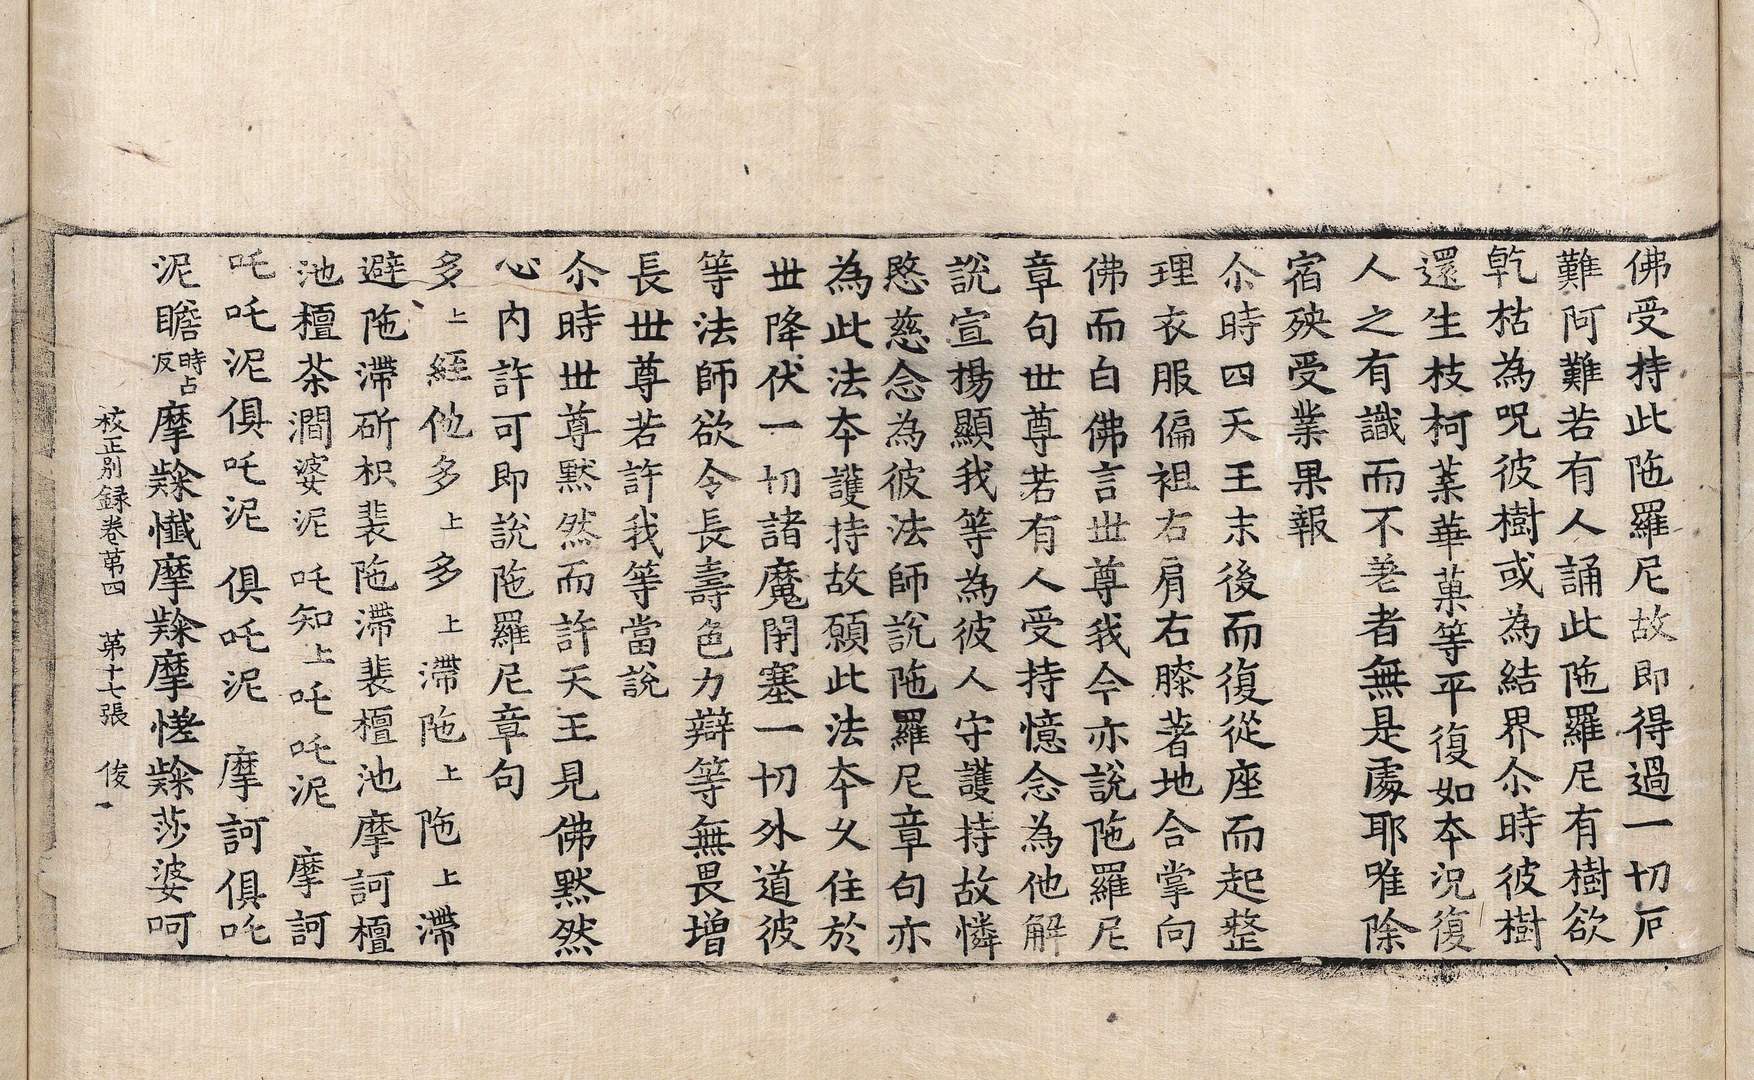 佛受持此陁羅尼故即得過一切戹
難阿難若有人誦此陁羅尼有樹欲
乹枯為呪彼樹或為結界尒時彼樹
還生枝柯葉華菓等平復如夲況復
人之有識而不差者無是處耶唯除
宿殃受業果報
尒時四天王末後而復從座而起整
理衣服偏袒右肩右膝著地合掌向
佛而白佛言丗尊我今亦說陁羅尼
章句丗尊若有人受持憶念為他解
說宣揚顯我等為彼人守護持故憐
愍慈念為彼法師說陁羅尼章句亦
為此法夲護持故願此法夲久住於
丗降伏一切諸魔閇塞一切外道彼
等法師欲令長壽色力辯等無畏增
長丗尊若許我等當說
尒時丗尊默然而許天王見佛默然
心內許可即說陁羅尼章句
多上絰他多上多上滯陁上陁上滯
避陁滯斫枳裴陁滯裴檀池摩訶檀
池檀茶澗婆泥吒知上吒吒泥 摩訶
吒吒泥俱吒泥 俱吒泥 摩訶俱吒
泥瞻時占反摩㘑懺摩㘑摩㥰㘑莎婆呵
校正別録卷苐四 苐十七張 俊